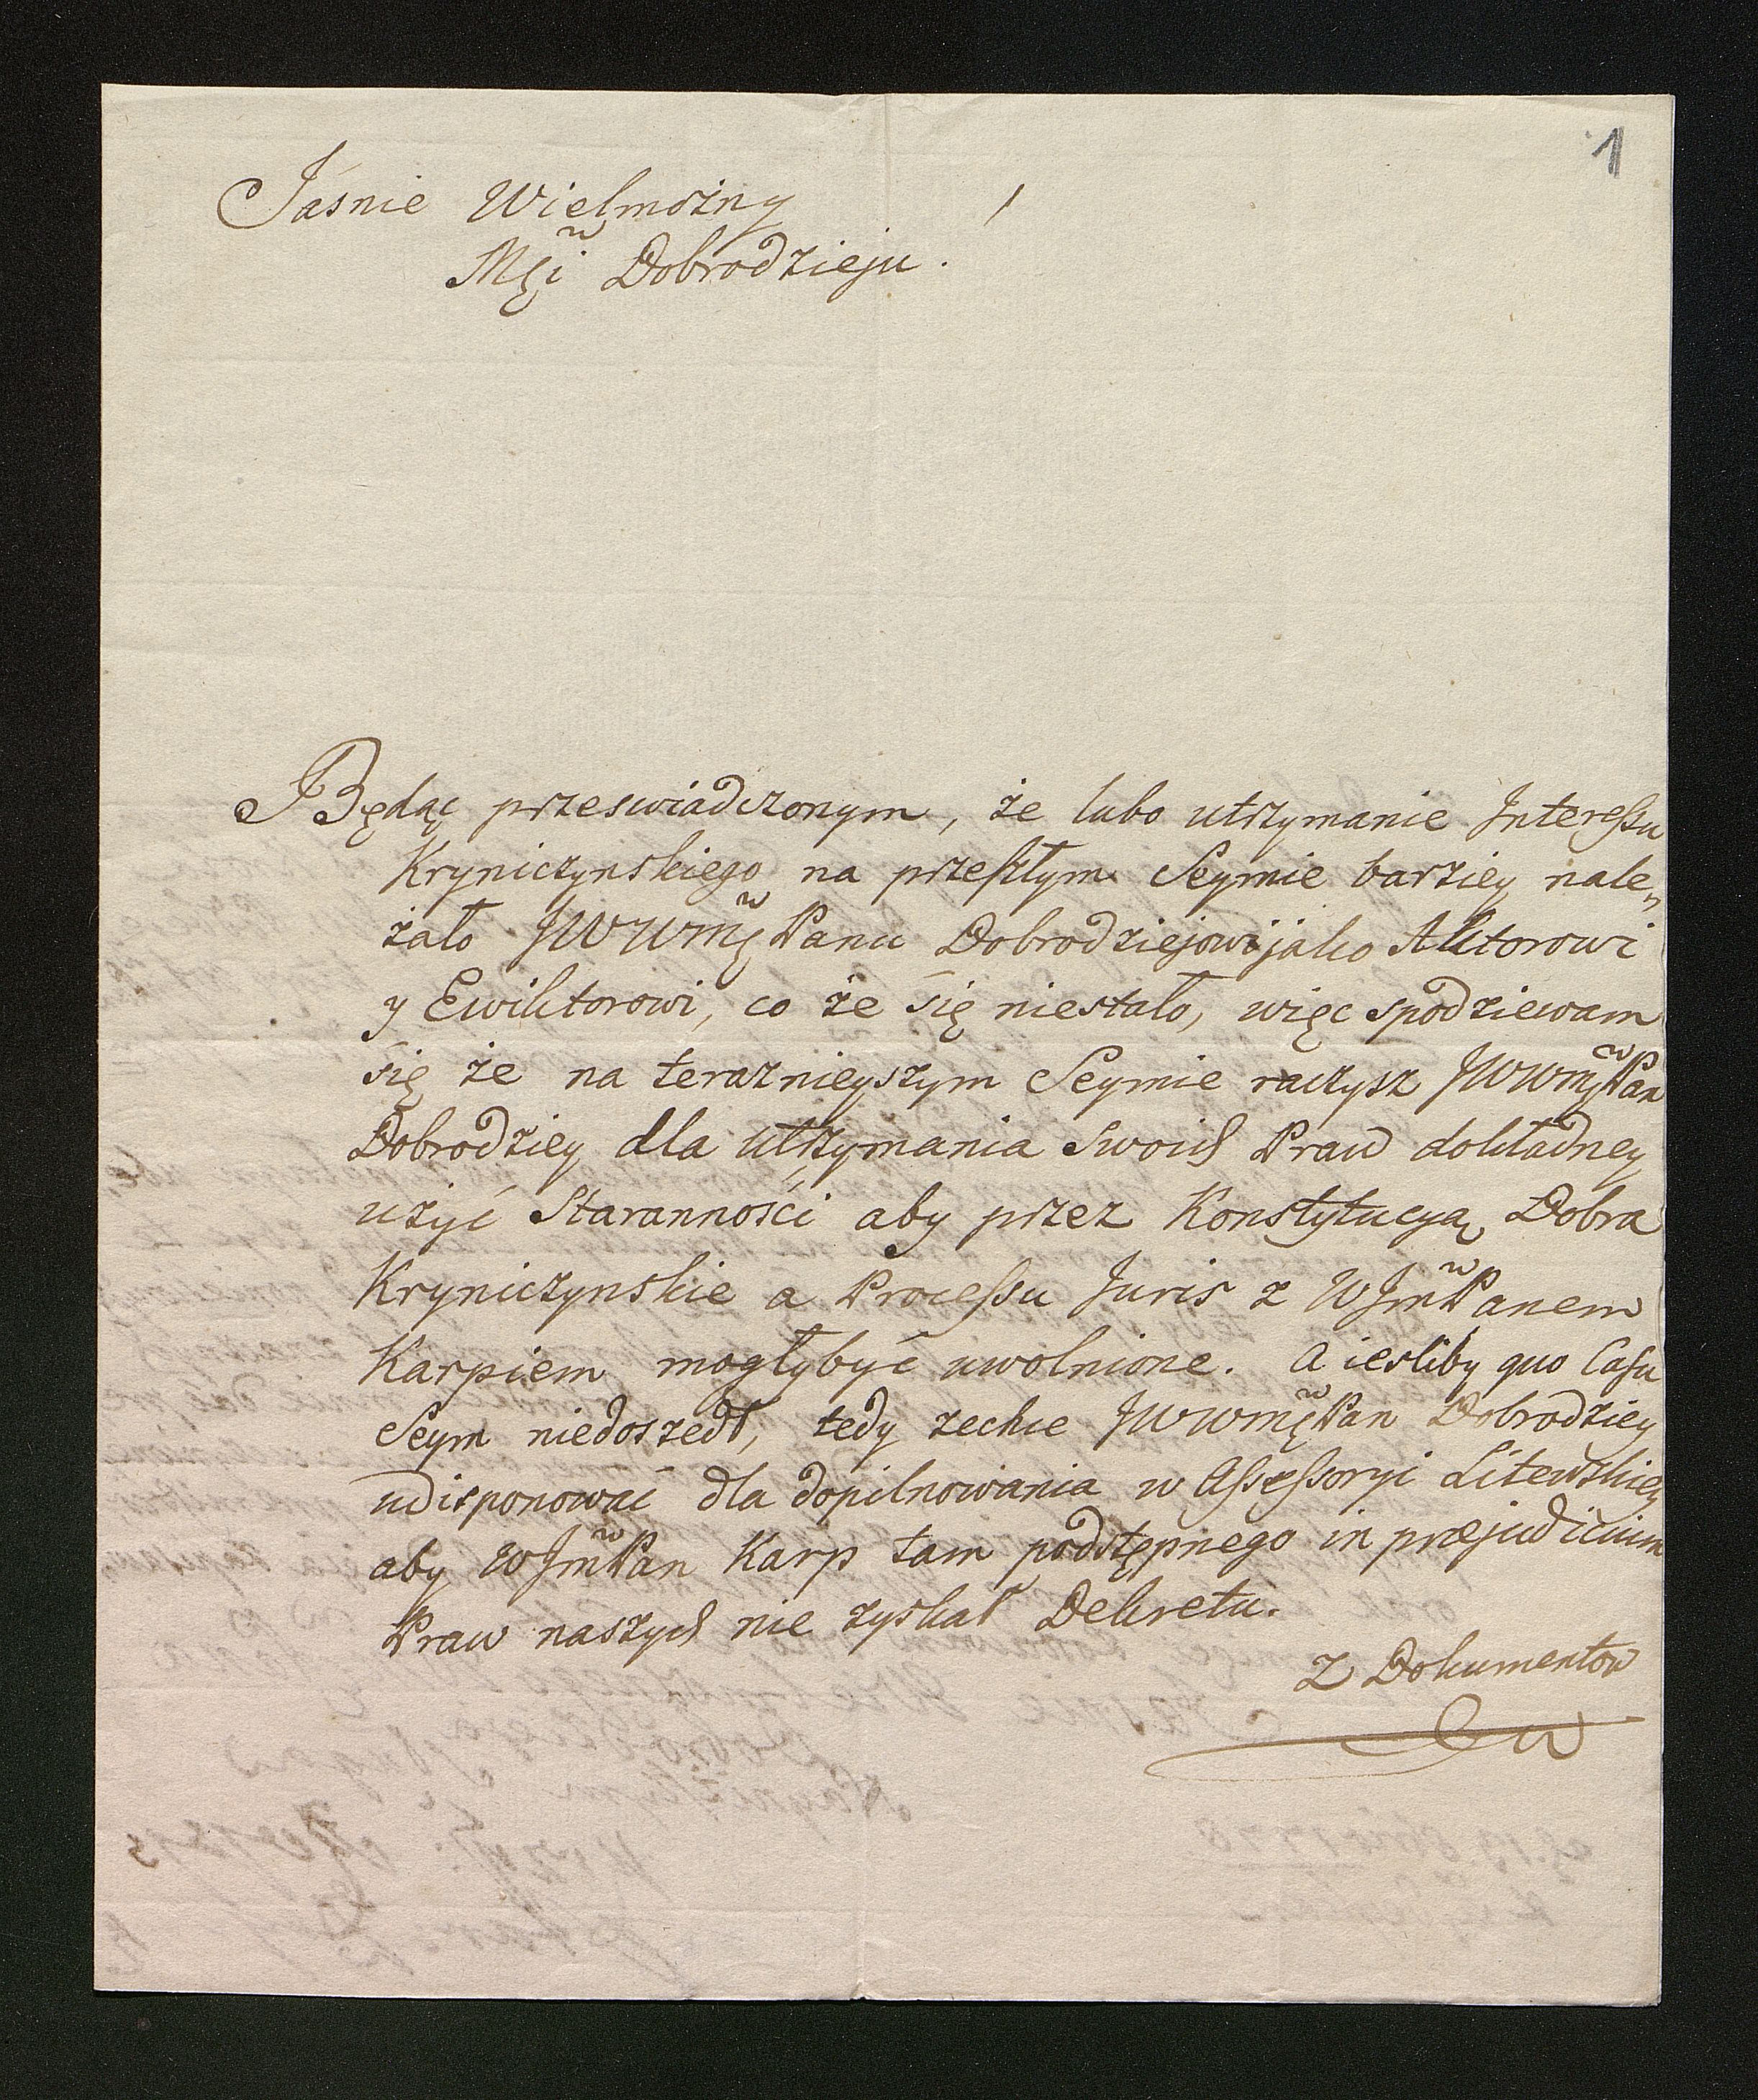 1
Jasnie Wielmożny
Mci Dobrodzieju.
Będąc przeswiadczonym, że lubo utrzymanie Interessu
Kryniczynskiego na przeszłym Seymie barziey nale„
żało JWWMć Panu Dobrodziejowi jako Aktorowi
y Ewiktorowi, co że się niestało, więc spodziewam
się że na teraznieyszym Seymie raczysz JWWMć Pan
Dobrodziey dla utrzymania Swoich Praw dokładney
użyć Staranności aby przez Konstytucyą Dobra
Kryniczynskie a Processu Juris z WJm Panem
Karpiem mogły być uwolnione. A iesliby quo Casu
Seym niedoszedł, tedy zechce JWWMć Pan Dobrodziey
udisponować dla dopilnowania w Assessoryi Litewskiey
aby WJm Pan Karp tam podstępnego in præjudicium
Praw naszych nie zyskał Dekretu.
Z Dokumentow